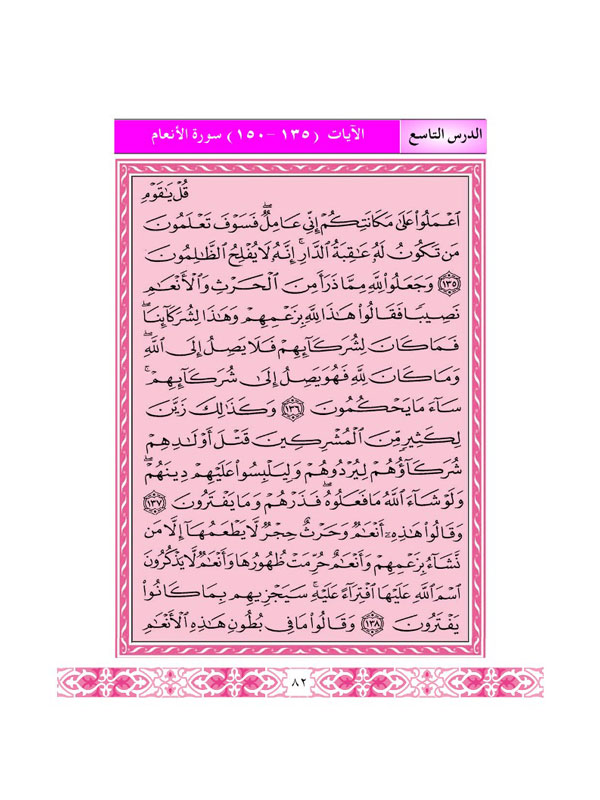 الدرس التاسع
الآيات (١٣٥ - ١٥٠) سورة الأنعام
قُلْ يَٰقَوْمِ
ٱعْمَلُوا۟ عَلَىٰ مَكَانَتِكُمْ إِنِّى عَامِلٌ ۖ فَسَوْفَ تَعْلَمُونَ
مَن تَكُونُ لَهُۥ عَٰقِبَةُ ٱلدَّارِ ۗ إِنَّهُۥ لَا يُفْلِحُ ٱلظَّٰلِمُونَ
﴿١٣٥﴾ وَجَعَلُوا۟ لِلَّهِ مِمَّا ذَرَأَ مِنَ ٱلْحَرْثِ وَٱلْأَنْعَٰمِ
نَصِيبًا فَقَالُوا۟ هَٰذَا لِلَّهِ بِزَعْمِهِمْ وَهَٰذَا لِشُرَكَآئِنَا ۖ
فَمَا كَانَ لِشُرَكَآئِهِمْ فَلَا يَصِلُ إِلَى ٱللَّهِ ۖ
وَمَا كَانَ لِلَّهِ فَهُوَ يَصِلُ إِلَىٰ شُرَكَآئِهِمْ ۗ
سَآءَ مَا يَحْكُمُونَ ﴿١٣٦﴾ وَكَذَٰلِكَ زَيَّنَ
لِكَثِيرٍ مِّنَ ٱلْمُشْرِكِينَ قَتْلَ أَوْلَٰدِهِمْ
شُرَكَآؤُهُمْ لِيُرْدُوهُمْ وَلِيَلْبِسُوا۟ عَلَيْهِمْ دِينَهُمْ ۖ
وَلَوْ شَآءَ ٱللَّهُ مَا فَعَلُوهُ ۖ فَذَرْهُمْ وَمَا يَفْتَرُونَ ﴿١٣٧﴾
وَقَالُوا۟ هَٰذِهِۦٓ أَنْعَٰمٌ وَحَرْثٌ حِجْرٌ لَّا يَطْعَمُهَآ إِلَّا مَن
نَّشَآءُ بِزَعْمِهِمْ وَأَنْعَٰمٌ حُرِّمَتْ ظُهُورُهَا وَأَنْعَٰمٌ لَّا يَذْكُرُونَ
ٱسْمَ ٱللَّهِ عَلَيْهَا ٱفْتِرَآءً عَلَيْهِ ۚ سَيَجْزِيهِم بِمَا كَانُوا۟
يَفْتَرُونَ ﴿١٣٨﴾ وَقَالُوا۟ مَا فِى بُطُونِ هَٰذِهِ ٱلْأَنْعَٰمِ
٨٢